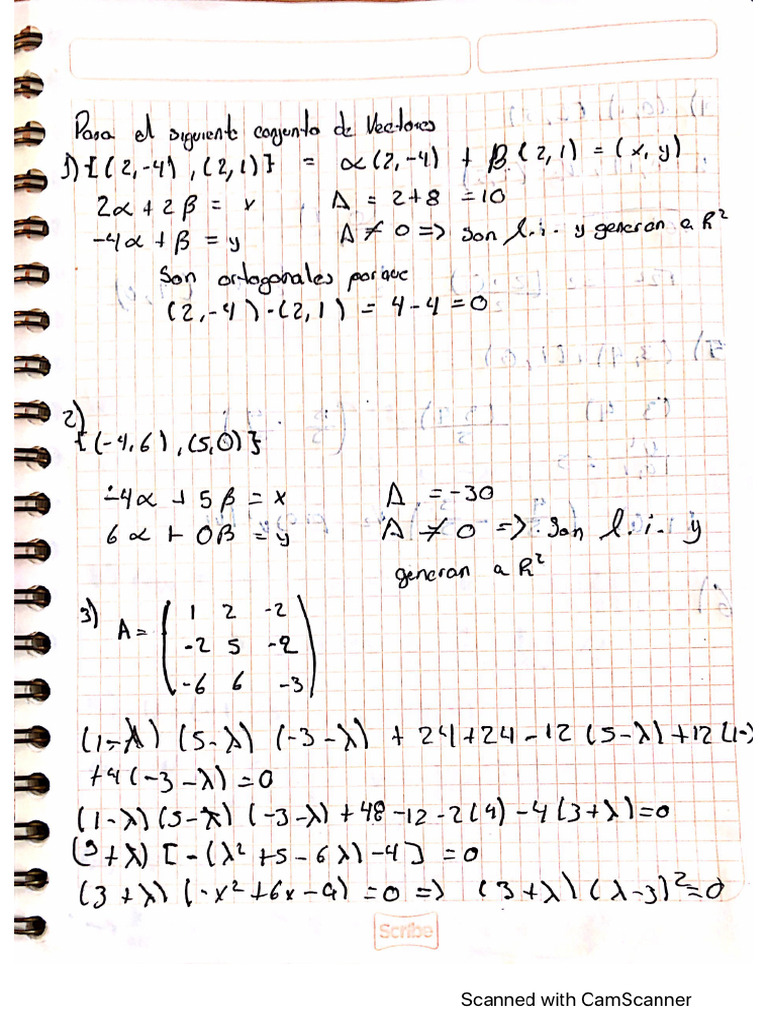 Para el siguiente conjunto de Vectores
1) {(2,-4), (2,1)} = α(2,-4) + β(2,1) = (x,y)
2α + 2β = x    Δ = 2+8 = 10
-4α + β = y    Δ ≠ 0 => Son l.i. y generan a R²
Son ortogonales porque
(2,-4)·(2,1) = 4-4 = 0
2)
{(-4,6), (5,0)}
-4α + 5β = x    Δ = -30
6α + 0β = y    Δ ≠ 0 => Son l.i. y
generan a R²
3) A = ( 1 2 -2
-2 5 -2
-6 6 -3 )
(1-λ)(5-λ)(-3-λ) + 24+24 -12(5-λ)+12(1-λ
+4(-3-λ)=0
(1-λ)(5-λ)(-3-λ)+48-12-2(4)-4(3+λ)=0
(3+λ)[-(λ²+5-6λ)-4] = 0
(3+λ)(-x²+6x-9)=0 => (3+λ)(λ-3)²=0
Scribe
Scanned with CamScanner